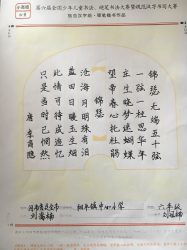 第六届全国少年儿童书法、硬笔书法大赛暨规范汉字书写大赛
锦瑟无端五十弦
一弦一柱思华年
庄生晓梦迷蝴蝶
望帝春心托杜鹃
锦瑟
沧海月明珠有泪
蓝田日暖玉生烟
此情可待成追忆
只是当时已惘然
唐 李商隐
镇中心小学
六年级